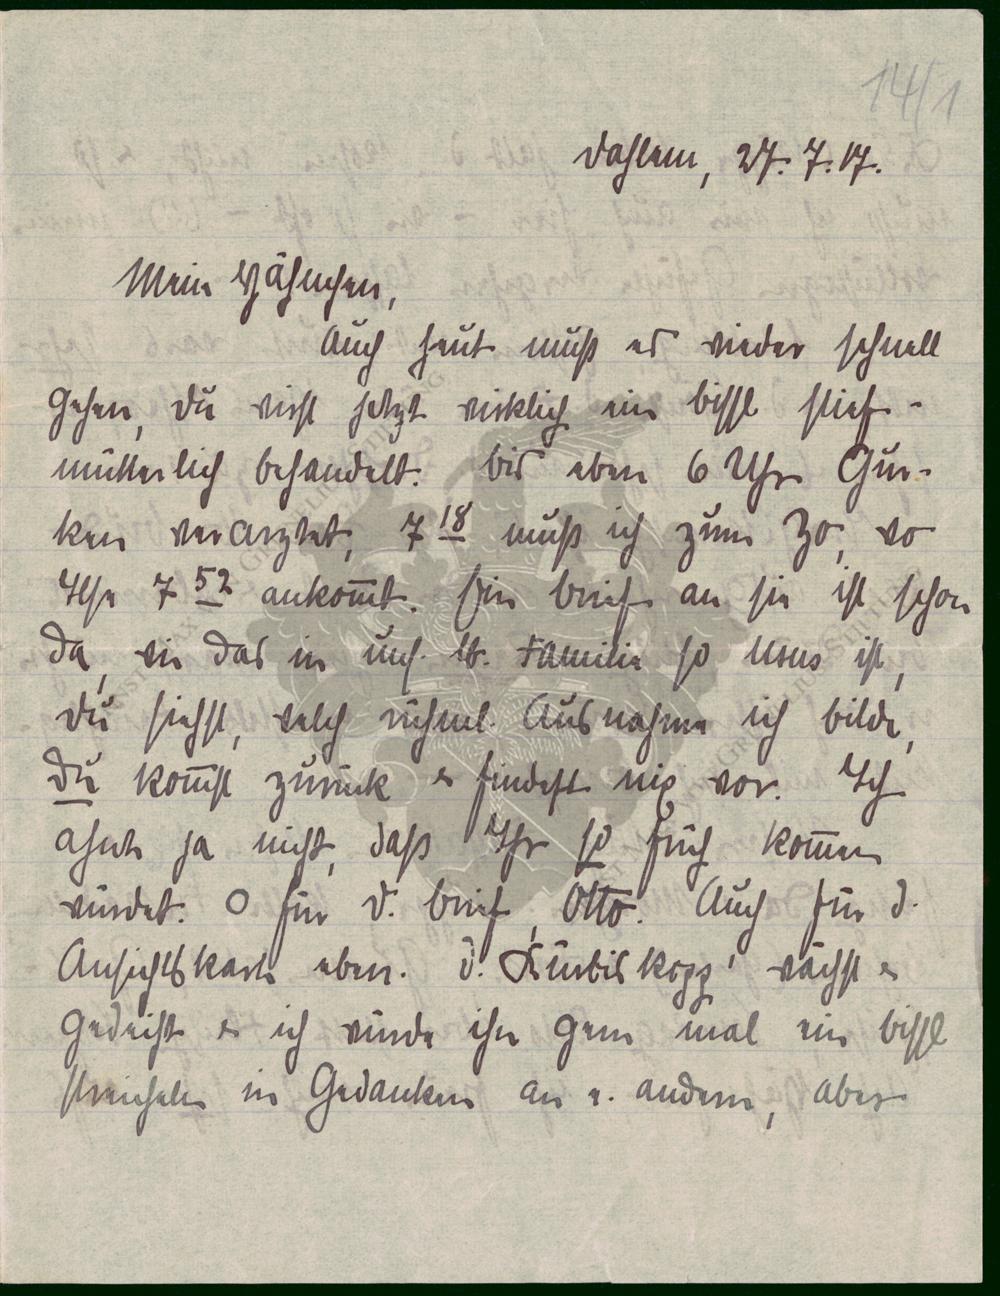 14/1
Dahlem, 27. 7. 17.
Mein Hähnchen,
Auch heut muß es wieder schnell
gehen, Du wirst jetzt wirklich ein bissl stief-
mütterlich behandelt. Bis eben 6 Uhr Gur-
ken verarztet, 7 18 muß ich zum Zo, wo
Ilse 7 52 ankom̄t. Ein Brief an sie ist schon
da, wie das in uns. lb. Familie so Usus ist,
Du siehst, welch rühml. Ausnahme ich bilde,
Du kom̄st zurück & findest nix vor. Ich
ahnte ja nicht, daß Ihr so früh kom̄en
würdet. O für d. Brief, Otto. Auch für d.
Ansichtskarte eben. D. Kürbiskopp' wächst &
gedeiht & ich würde ihn gern mal ein bissl
streicheln in Gedanken an e. andern, aber